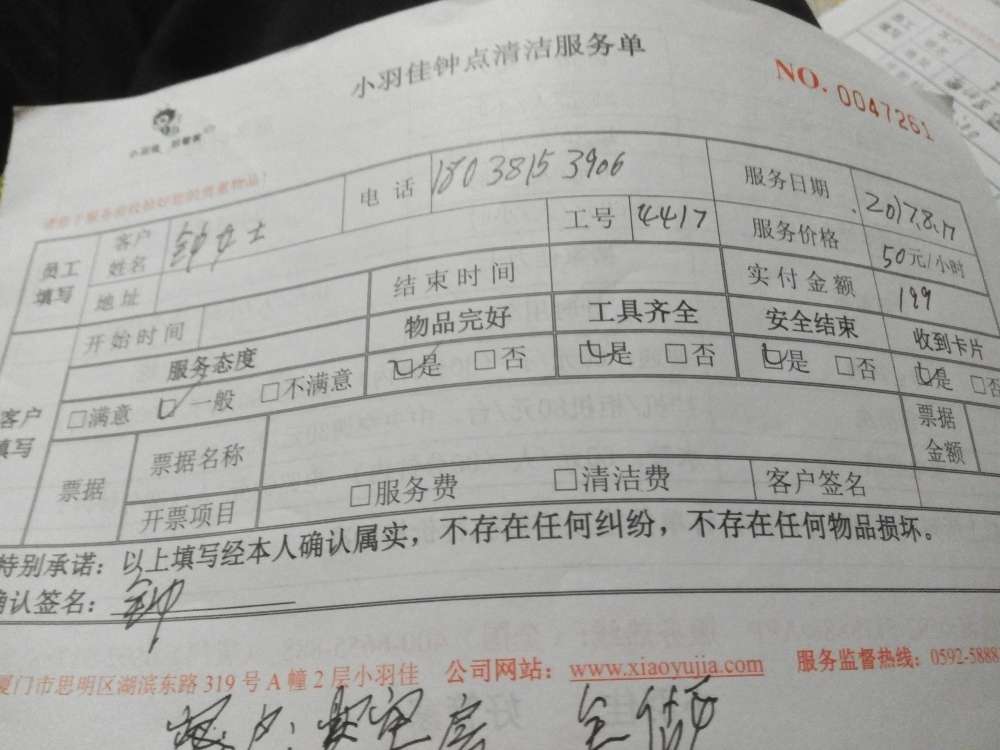 小羽佳钟点清洁服务单
NO. 0047261
员工填写 客户姓名 钟女士 电话 18038153906 服务日期 2017.8.17
地址 工号 4417 服务价格 50元/小时
开始时间 结束时间 实付金额 199
客户填写 服务态度 物品完好 工具齐全 安全结束 收到卡片
□满意 ☑一般 □不满意 ☑是 □否 ☑是 □否 ☑是 □否 ☑是 □否
票据 票据名称 票据金额
开票项目 □服务费 □清洁费 客户签名
特别承诺：以上填写经本人确认属实，不存在任何纠纷，不存在任何物品损坏。
确认签名：钟
厦门市思明区湖滨东路319号A幢2层小羽佳 公司网站：www.xiaoyujia.com 服务监督热线：0592-5888